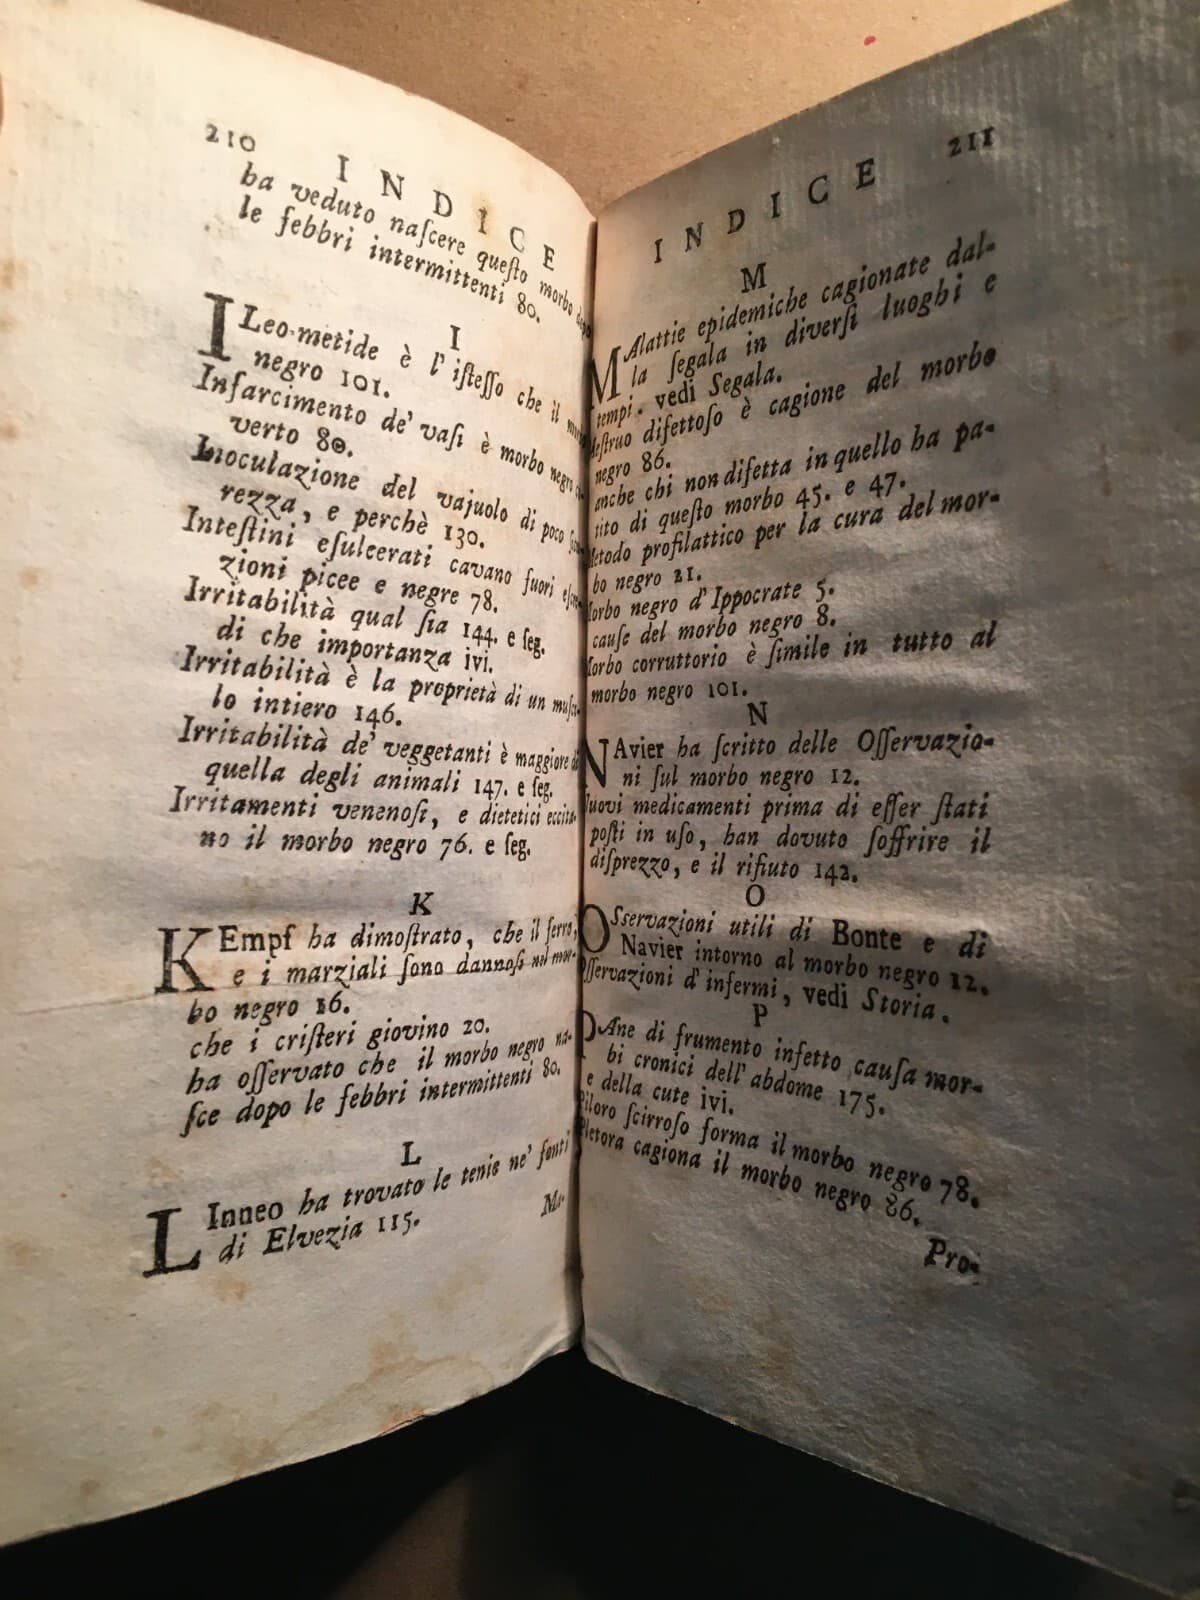 210
INDICE
ha veduto naſcere queſto morbo dopo
le febbri intermittenti 80.
I
ILeo-metide è l' iſteſſo che il
negro 101.
Infarcimento de' vaſi è morbo negro
verto 80.
Inoculazione del vajuolo di poco
rezza, e perchè 130.
Inteſtini eſulcerati cavano fuori eſcre-
zioni picee e negre 78.
Irritabilità qual ſia 144. e ſeg.
di che importanza ivi.
Irritabilità è la proprietà di un muſco-
lo intiero 146.
Irritabilità de' veggetanti è maggiore di
quella degli animali 147. e ſeg.
Irritamenti venenoſi, e dietetici eccita-
no il morbo negro 76. e ſeg.
K
KEmpf ha dimoſtrato, che il ferro,
e i marziali ſono dannoſi nel mor-
bo negro 16.
che i criſteri giovino 20.
ha oſſervato che il morbo negro na-
ſce dopo le febbri intermittenti 80.
L
LInneo ha trovato le tenie ne' fonti
di Elvezia 115.
Ma-
211
INDICE
M
MAlattie epidemiche cagionate dal-
la ſegala in diverſi luoghi e
tempi. vedi Segala.
Meſtruo difettoſo è cagione del morbo
negro 86.
anche chi non difetta in quello ha pa-
tito di queſto morbo 45. e 47.
Metodo profilattico per la cura del mor-
bo negro 21.
Morbo negro d' Ippocrate 5.
cauſe del morbo negro 8.
Morbo corruttorio è ſimile in tutto al
morbo negro 101.
N
NAvier ha ſcritto delle Oſſervazio-
ni ſul morbo negro 12.
Nuovi medicamenti prima di eſſer ſtati
poſti in uſo, han dovuto ſoffrire il
diſprezzo, e il rifiuto 142.
O
OSservazioni utili di Bonte e di
Navier intorno al morbo negro 12.
Oſſervazioni d' infermi, vedi Storia.
P
PAne di frumento infetto cauſa mor-
bi cronici dell' abdome 175.
e della cute ivi.
Piloro ſcirroſo forma il morbo negro 78.
Pletora cagiona il morbo negro 86.
Pro-